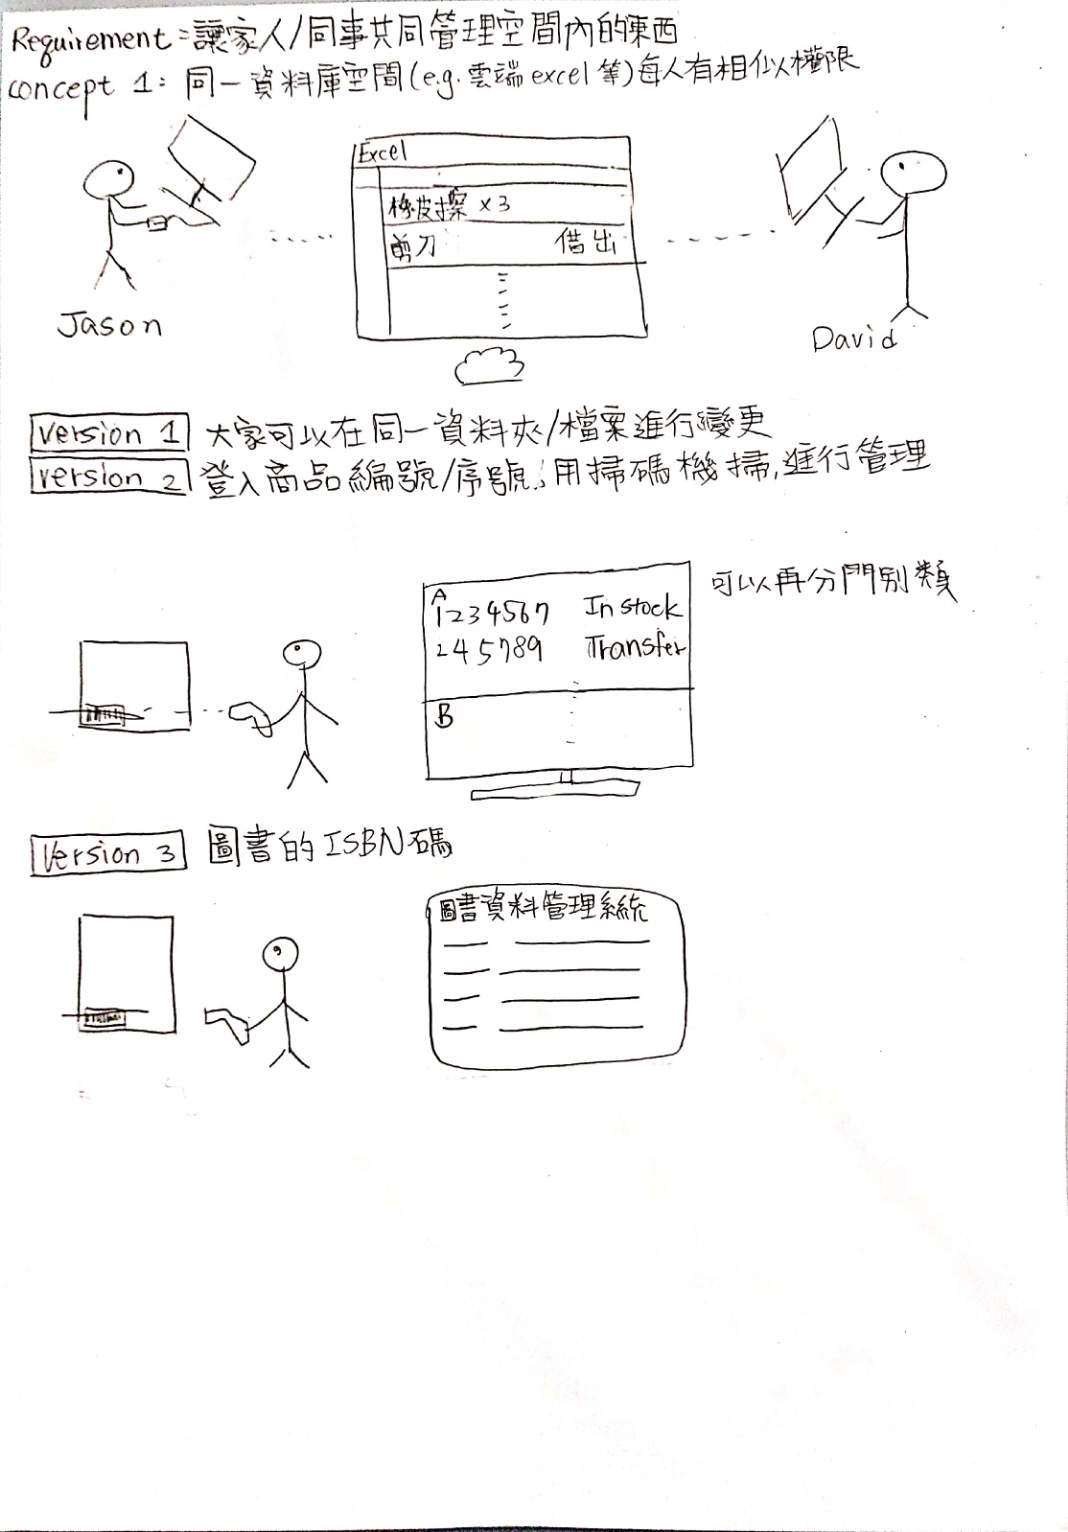 Requirement：讓家人/同事共同管理空間內的東西
concept 1：同一資料庫空間(e.g.雲端excel等)每人有相似權限
Excel
橡皮擦 x3
剪刀 借出
Jason
David
version 1 大家可以在同一資料夾/檔案進行變更
version 2 登入商品編號/序號；用掃碼機掃，進行管理
可以再分門別類
A
1234567 In stock
245789 Transfer
B
Version 3 圖書的ISBN碼
圖書資料管理系統